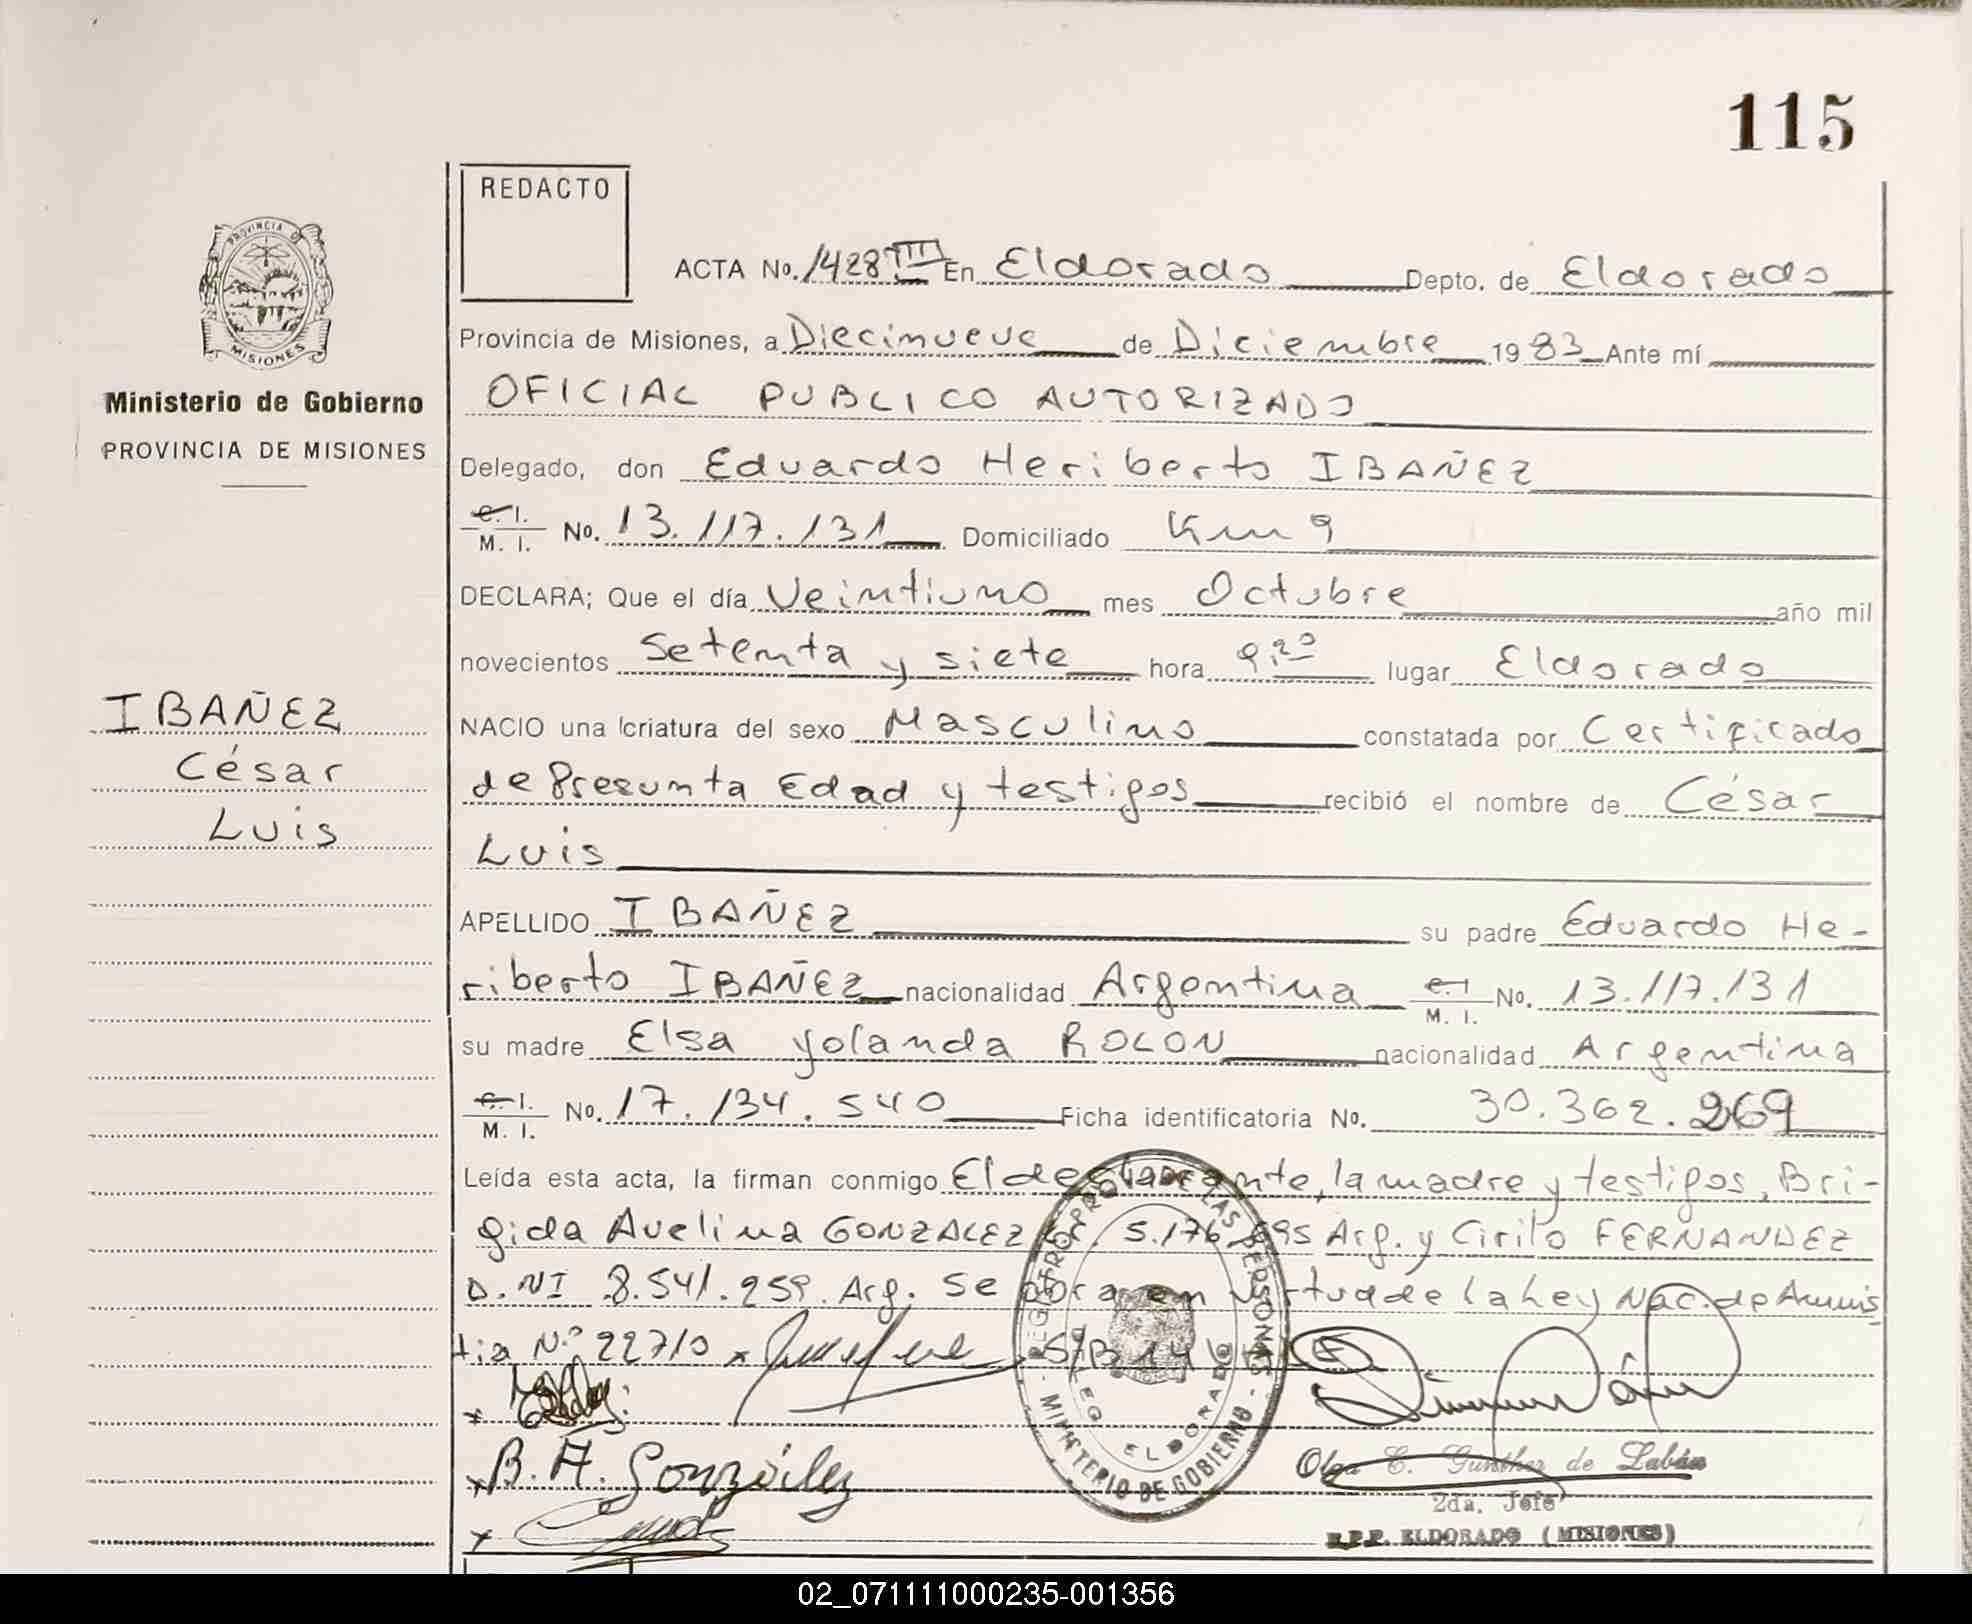 115
REDACTO
ACTA No. 1428 TIII En Eldorado Depto. de Eldorado
Provincia de Misiones, a Diecinueve de Diciembre 1983 Ante mí
OFICIAL PUBLICO AUTORIZADO
Delegado, don Eduardo Heriberto IBAÑEZ
c. I. M. I. No. 13.117.131 Domiciliado Km 9
DECLARA; Que el día Veintiuno mes Octubre año mil
novecientos Setenta y siete hora 9,20 lugar Eldorado
NACIO una criatura del sexo Masculino constatada por Certificado
de Presunta Edad y testigos recibió el nombre de César
Luis
APELLIDO IBAÑEZ su padre Eduardo He-
riberto IBAÑEZ nacionalidad Argentina c. I. M. I. No. 13.117.131
su madre Elsa Yolanda ROLON nacionalidad Argentina
c. I. M. I. No. 17.134.540 Ficha identificatoria No. 30.362.269
Leída esta acta, la firman conmigo El declarante, la madre y testigos, Bri-
gida Avelina GONZALEZ 5.176.895 Arg. y Cirilo FERNANDEZ
D.NI 8.541.959. Arg. Se obra en virtud de la Ley Nac. de Amnis
tia N° 22710 S/B 14
B. A. González
Olga E. Gunther de Labán
2da. Jefe
R.P.P. ELDORADO (MISIONES)
PROVINCIA D
MISIONES
Ministerio de Gobierno
PROVINCIA DE MISIONES
IBAÑEZ
César
Luis
REGISTRO PROV. DE LAS PERSONAS
MINISTERIO DE GOBIERNO
ELDORADO
02_071111000235-001356